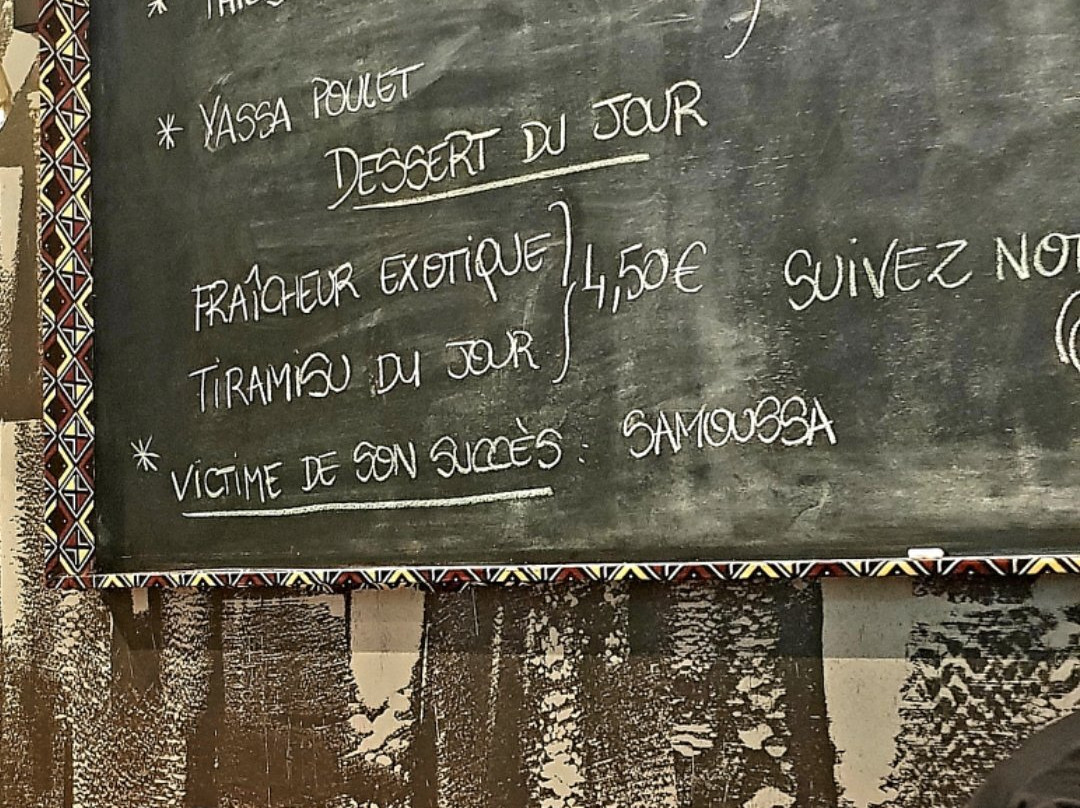 * YASSA POULET
DESSERT DU JOUR
FRAÎCHEUR EXOTIQUE
TIRAMISU DU JOUR
} 4,50€
SUIVEZ
* VICTIME DE SON SUCCÈS : SAMOUSSA